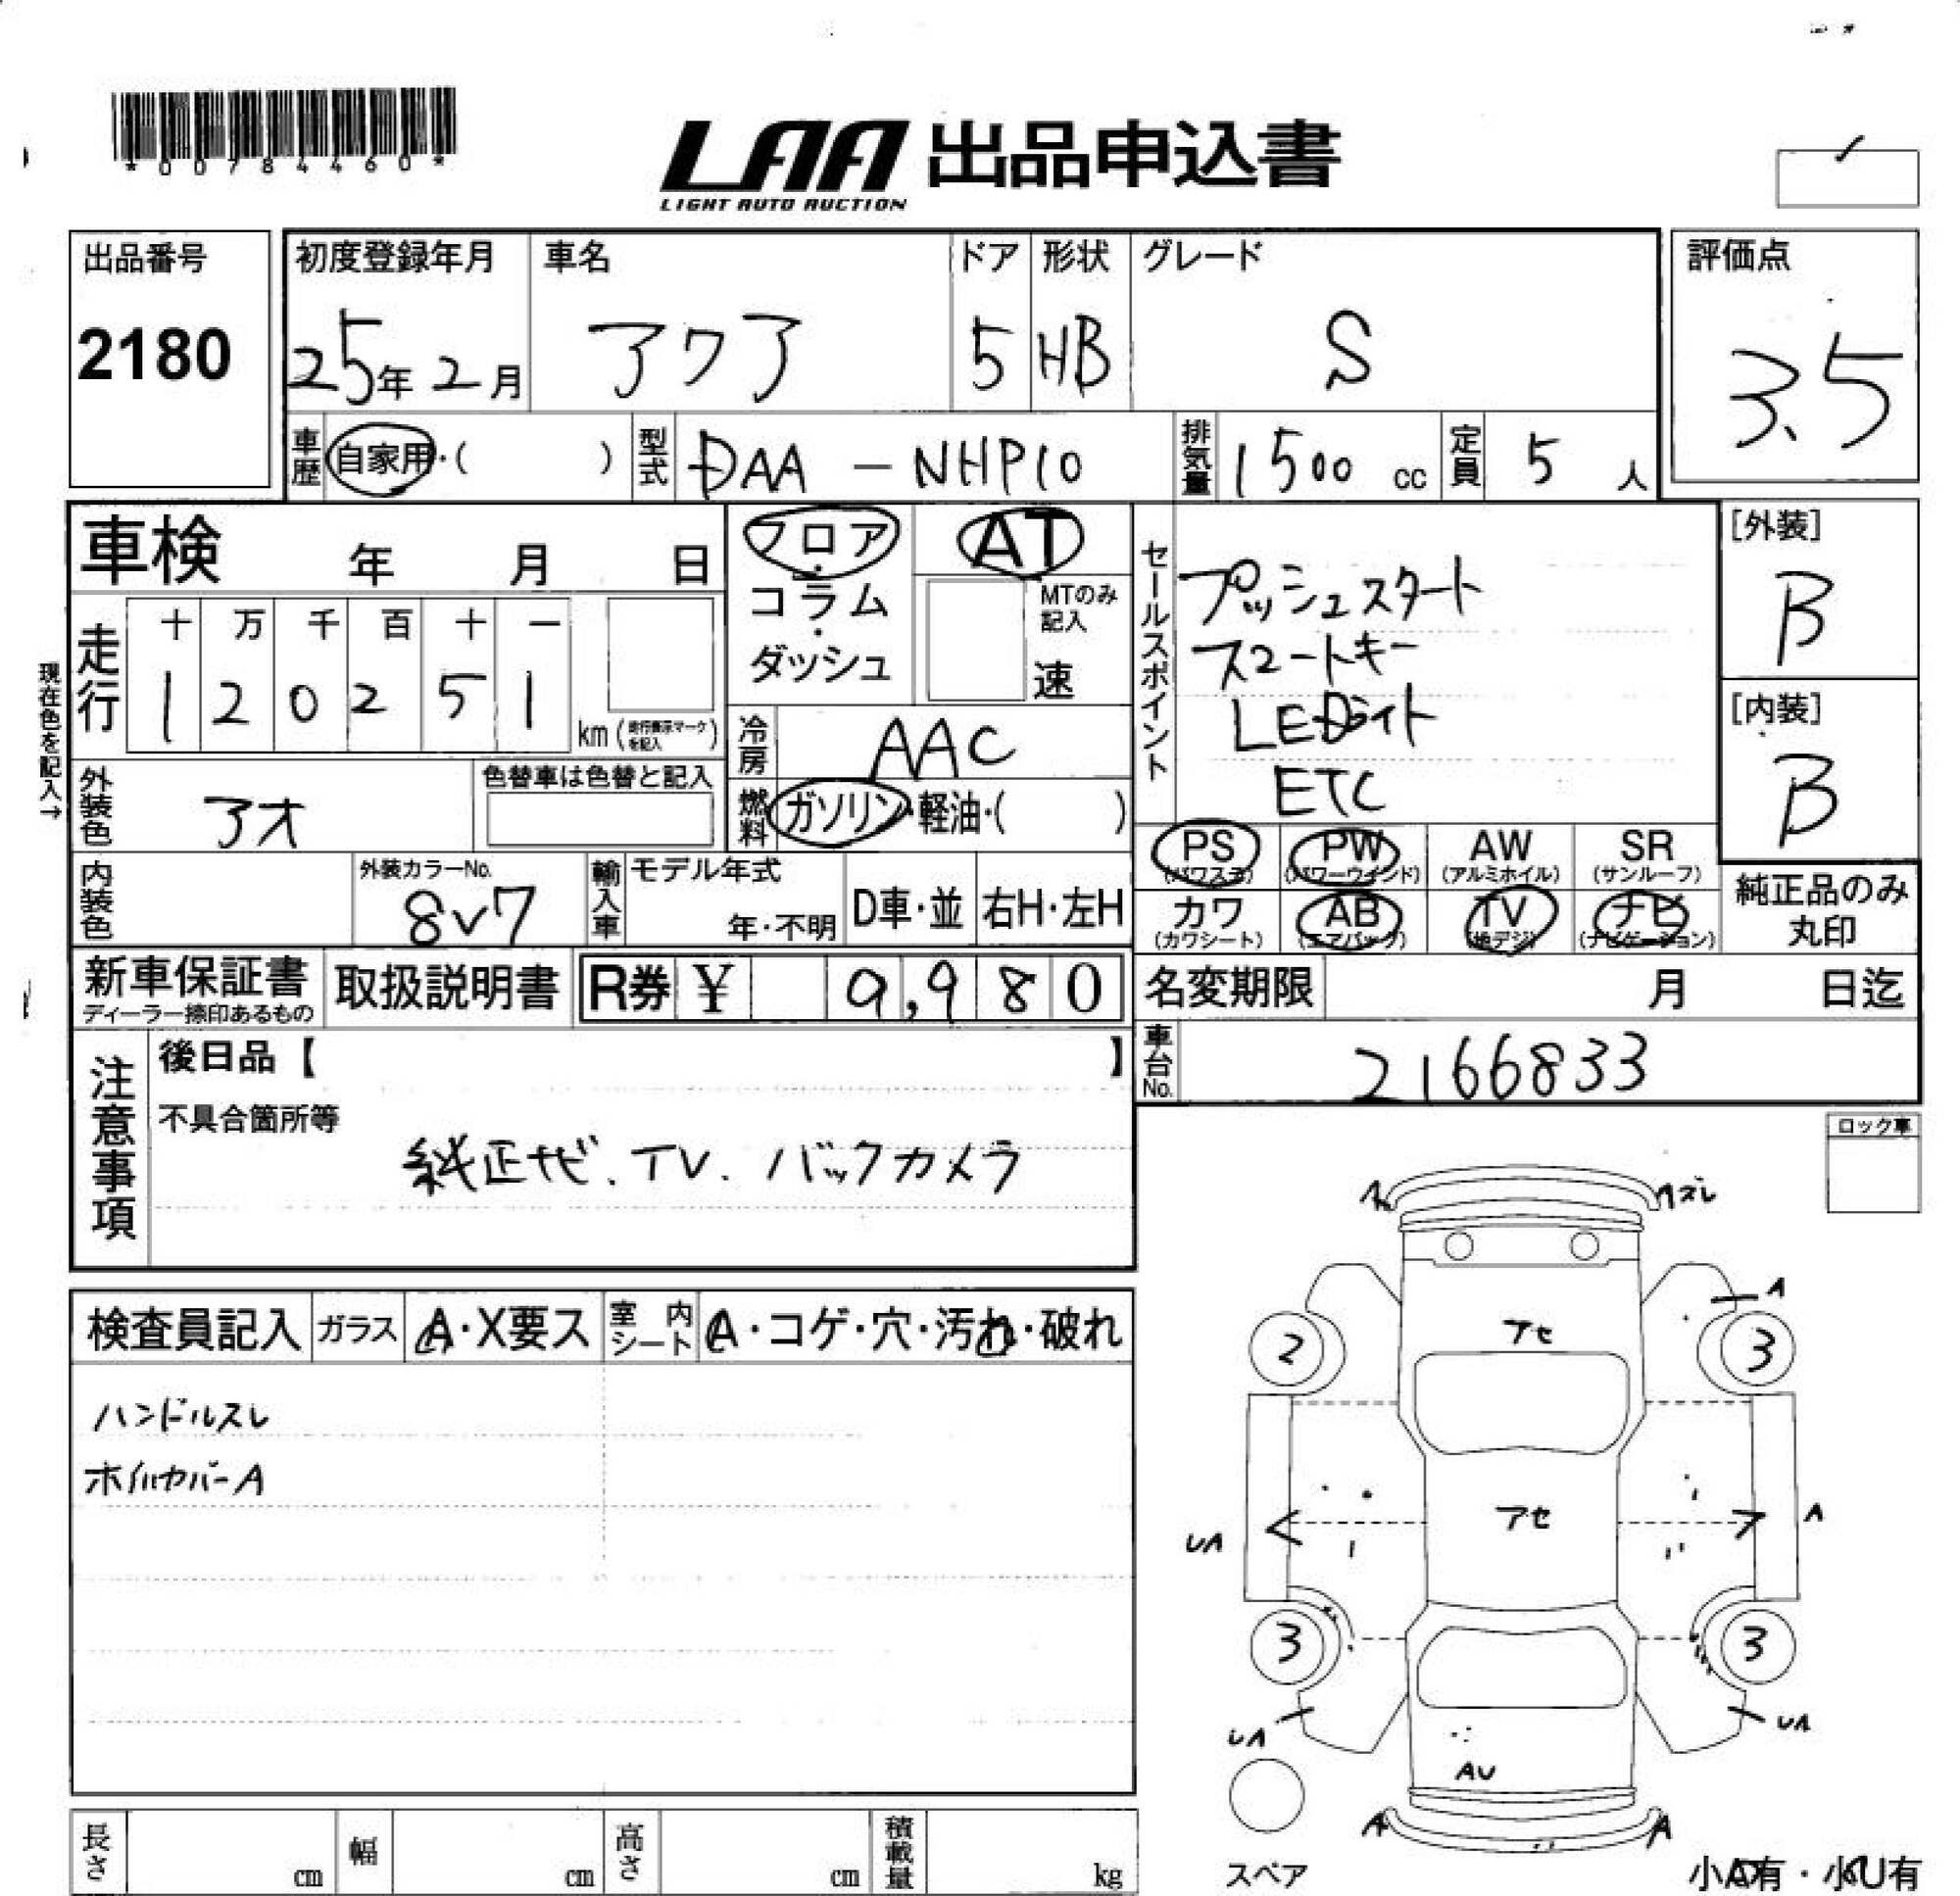 *00784460*
LAA 出品申込書
LIGHT AUTO AUCTION
出品番号
2180
初度登録年月 車名 ドア 形状 グレード 評価点
25年2月 アクア 5 HB S 3.5
車歴 自家用・( ) 型式 DAA-NHP10 排気量 1500 cc 定員 5 人
車検 年 月 日
フロア・コラム・ダッシュ
AT
MTのみ記入
速
セールスポイント
プッシュスタート
スマートキー
LEDライト
ETC
[外装]
B
[内装]
B
現在色を記入→
走行 十 万 千 百 十 一
1 2 0 2 5 1 km (走行表示マークを記入)
冷房 AAC
外装色 アオ 色替車は色替と記入
燃料 ガソリン・軽油・( )
PS (パワステ) PW (パワーウインド) AW (アルミホイル) SR (サンルーフ)
カワ (カワシート) AB (エアバック) TV (地デジ) ナビ (ナビゲーション)
純正品のみ丸印
内装色 外装カラーNo. 8V7 輸入車 モデル年式 年・不明 D車・並 右H・左H
新車保証書 取扱説明書 R券 ¥ 9,980
ディーラー捺印あるもの
名変期限 月 日迄
車台No. 2166833
注意事項
後日品【 】
不具合箇所等
純正ナビ.TV.バックカメラ
ロック車
検査員記入 ガラス A・X要ス 室内シート A・コゲ・穴・汚れ・破れ
ハンドルスレ
ホイルカバーA
A
Aズレ
A
アセ
2
3
アセ
UA
A
3
3
UA
UA
AU
A
A
スペア
小A有・小U有
長さ cm 幅 cm 高さ cm 積載量 kg